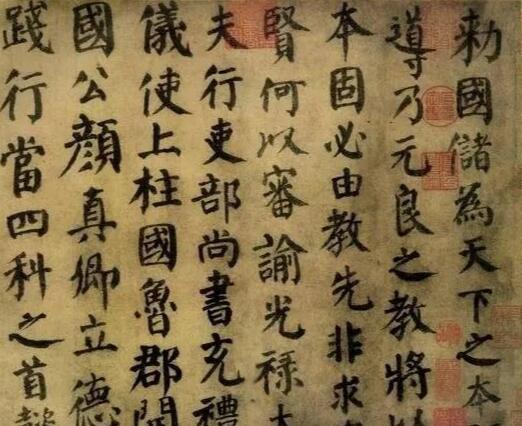 勑國儲為天下之本
導乃元良之教將以
本固必由教先非求
賢何以審諭光祿大
夫行吏部尚書充禮
儀使上柱國魯郡開
國公顏真卿立德
踐行當四科之首